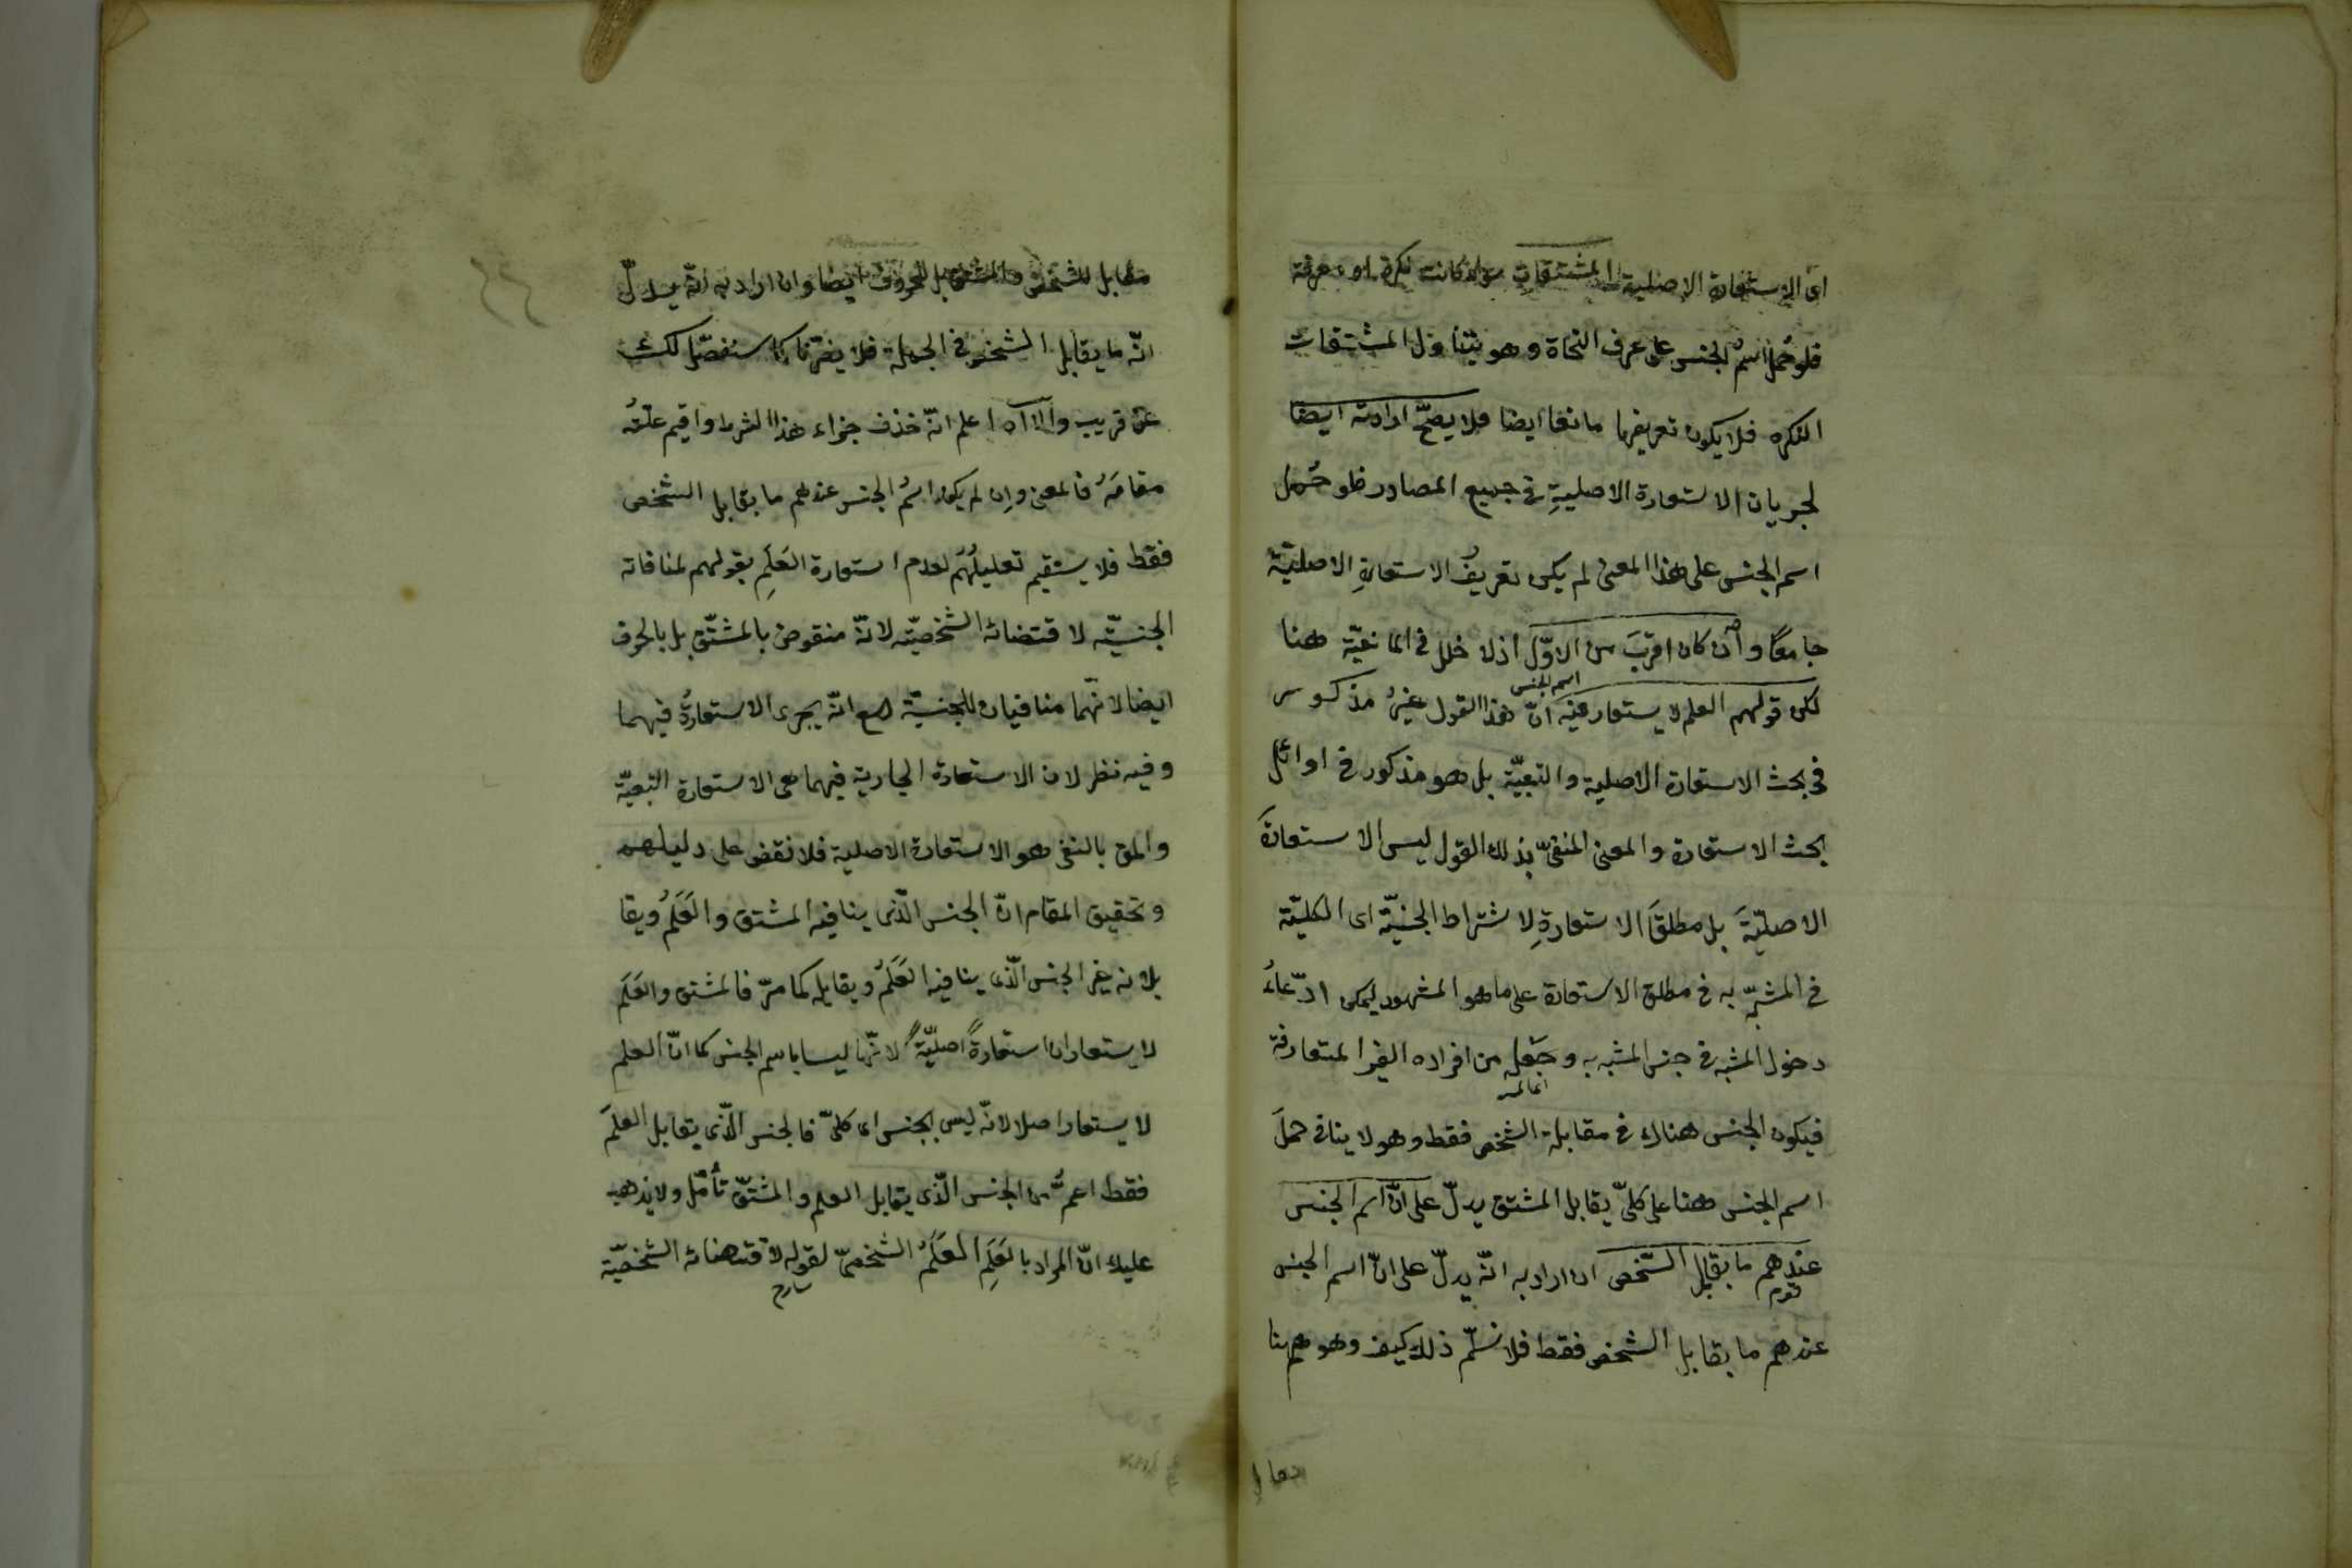 اى الاستعارة الاصلية المشتقات سواء كانت نكرة او معرفة
فلو حُمل اسمُ الجنس على عرف النحاة وهو يتناول المشتقات
النكره فلا يكون تعريفها مانعا ايضا فلا يصحّ ارادته ايضا
لجريان الاستعارة الاصليةِ فى جميع المصادر فلو حُمل
اسم الجنس على هذا المعنى لم يكن تعريفُ الاستعارةِ الاصليّة
جامعًا وان كان اقربَ من الاوّل اذ لا خلل فى المانعيّة هنا
لكن قولهم العلم لا يستعار فيه انّ هذا القول غيرُ مذكور
اسم الجنس
فى بحث الاستعارة الاصلية والتبعيّة بل هو مذكور فى اوائل
بحث الاستعارة والمعنى المنفىّ بذلك القول ليس الاستعارةَ
الاصليّةَ بل مطلقَ الاستعارةِ لاشتراط الجنسيّة اى الكليّة
فى المشبّه به فى مطلق الاستعارة على ما هو المشهور ليمكن ادّعاءُ
دخول المشبه فى جنس المشبه به وجَعلِه من افراده الغير المتعارفة
فيكون الجنس هناك فى مقابلة الشخص فقط وهو لا ينافى حملَ
اسم الجنس هنا على كلىّ يقابل المشتق يدلّ على انّ اسم الجنس
عندهم ما يقابل الشخص ان اراد به انّه يدلّ على انّ اسم الجنس
قوم
عندهم ما يقابل الشخص فقط فلا نسلّم ذلك كيف وهو ههنا
مقابل للشخص والمشتق بل للحروف ايضا وان اراد به انّه يدلّ
انّه ما يقابل الشخص فى الجملة فلا يضرّنا كما سنفصّل لك
عن قريب والا اه اعلم انّه حذف جزاء هذا الشرط واقيم علّتُه
مقامَهُ فالمعنى وان لم يكن اسمُ الجنس عندهم ما يقابل الشخص
فقط فلا يستقيم تعليلُهُم لعدم استعارة العَلَمِ بقولهم لمنافاته
الجنسيّة لاقتضائه الشخصيّة لانّه منقوض بالمشتقّ بل بالحرف
ايضا لانّهما منافيان للجنسيّة مع انّه يجرى الاستعارةُ فيهما
وفيه نظر لان الاستعارة الجارية فيهما هى الاستعارة التبعيّة
والمق بالنفى هو الاستعارة الاصلية فلا نقض على دليلهم
وتحقيق المقام انّ الجنس الّذى ينافيه المشتق والعَلَمُ ويقا
بلانه غير الجنس الّذى ينافيه العَلَمُ ويقابله كما مرّ فالمشتق والعَلَم
لا يستعاران استعارةً اصليّةً لانّهما ليسا باسم الجنس كما انّ العلم
لا يستعار اصلا لانّه ليس بجنس اى كلىّ فالجنس الّذى يقابل العلَمَ
فقط اعمُّ من الجنس الّذى يقابل العلم والمشتقّ تأمّل ولا يذهب
عليك انّ المراد بالعَلَمِ العَلَمُ الشخصىّ لقوله لاقتضائه الشخصيّة
شارح